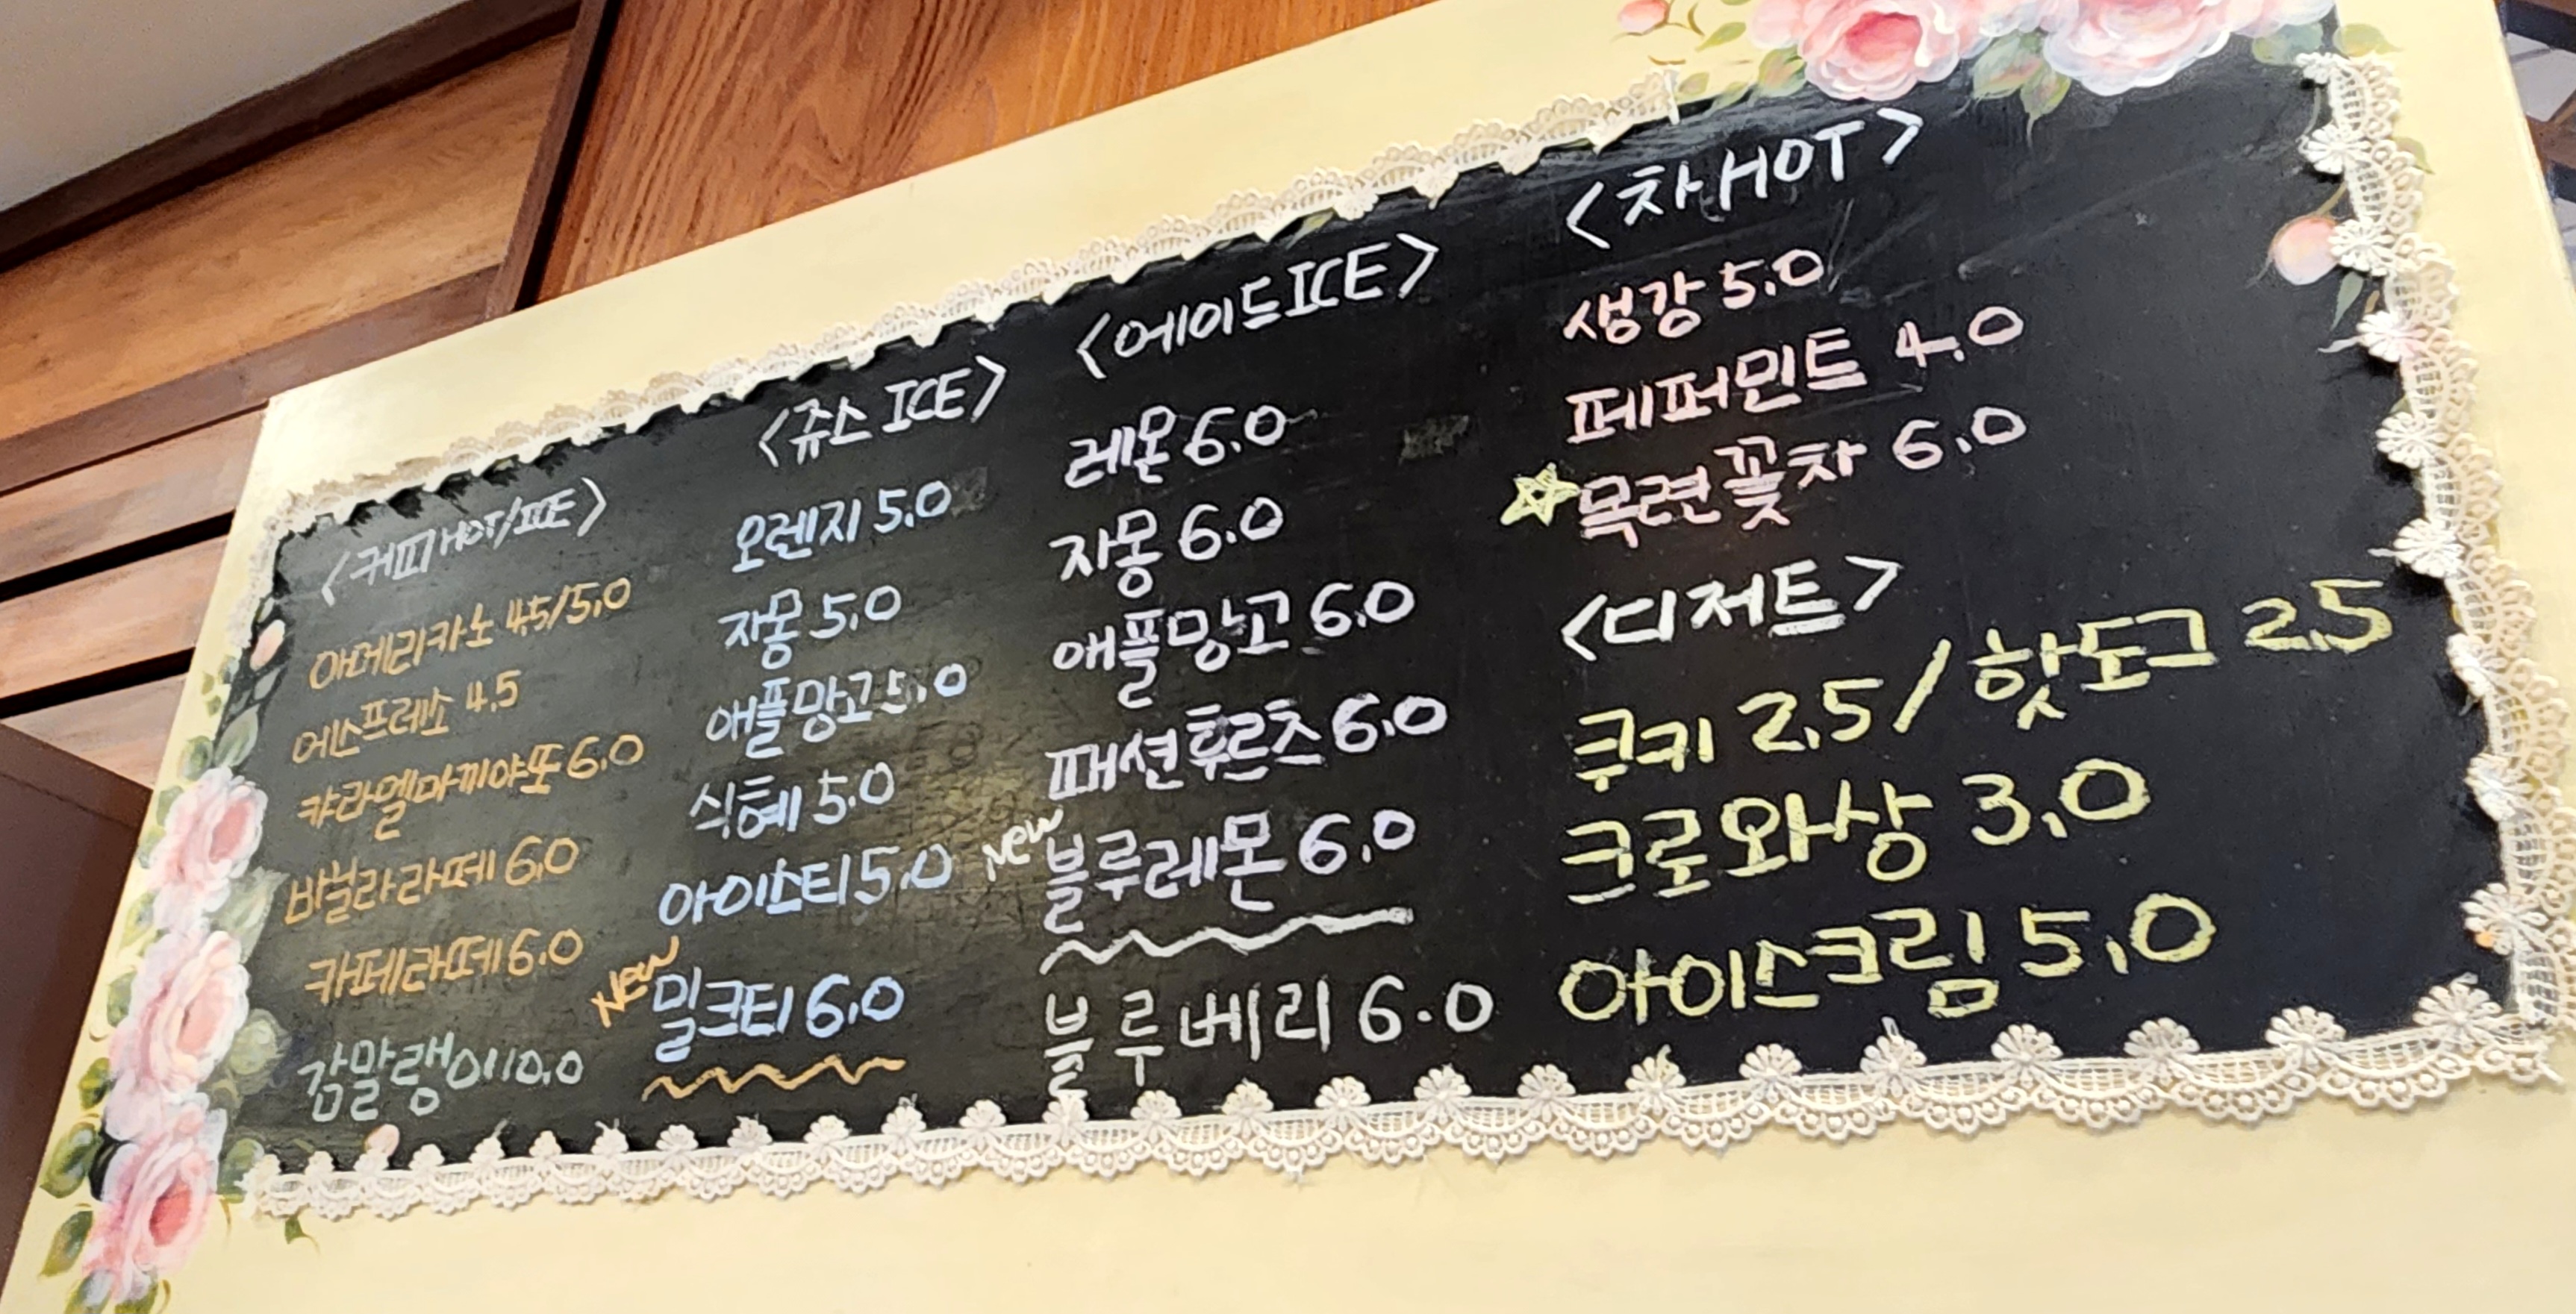 <커피HOT/ICE>
아메리카노 4.5/5.0
에스프레소 4.5
캬라멜마끼야또 6.0
바닐라라떼 6.0
카페라떼 6.0
감말랭이 10.0
<쥬스 ICE>
오렌지 5.0
자몽 5.0
애플망고 5.0
식혜 5.0
아이스티 5.0
New
밀크티 6.0
<에이드 ICE>
레몬 6.0
자몽 6.0
애플망고 6.0
패션후르츠 6.0
New
블루레몬 6.0
블루베리 6.0
<차 HOT>
생강 5.0
페퍼민트 4.0
☆목련꽃차 6.0
<디저트>
쿠키 2.5 / 핫도그 2.5
크로와상 3.0
아이스크림 5.0